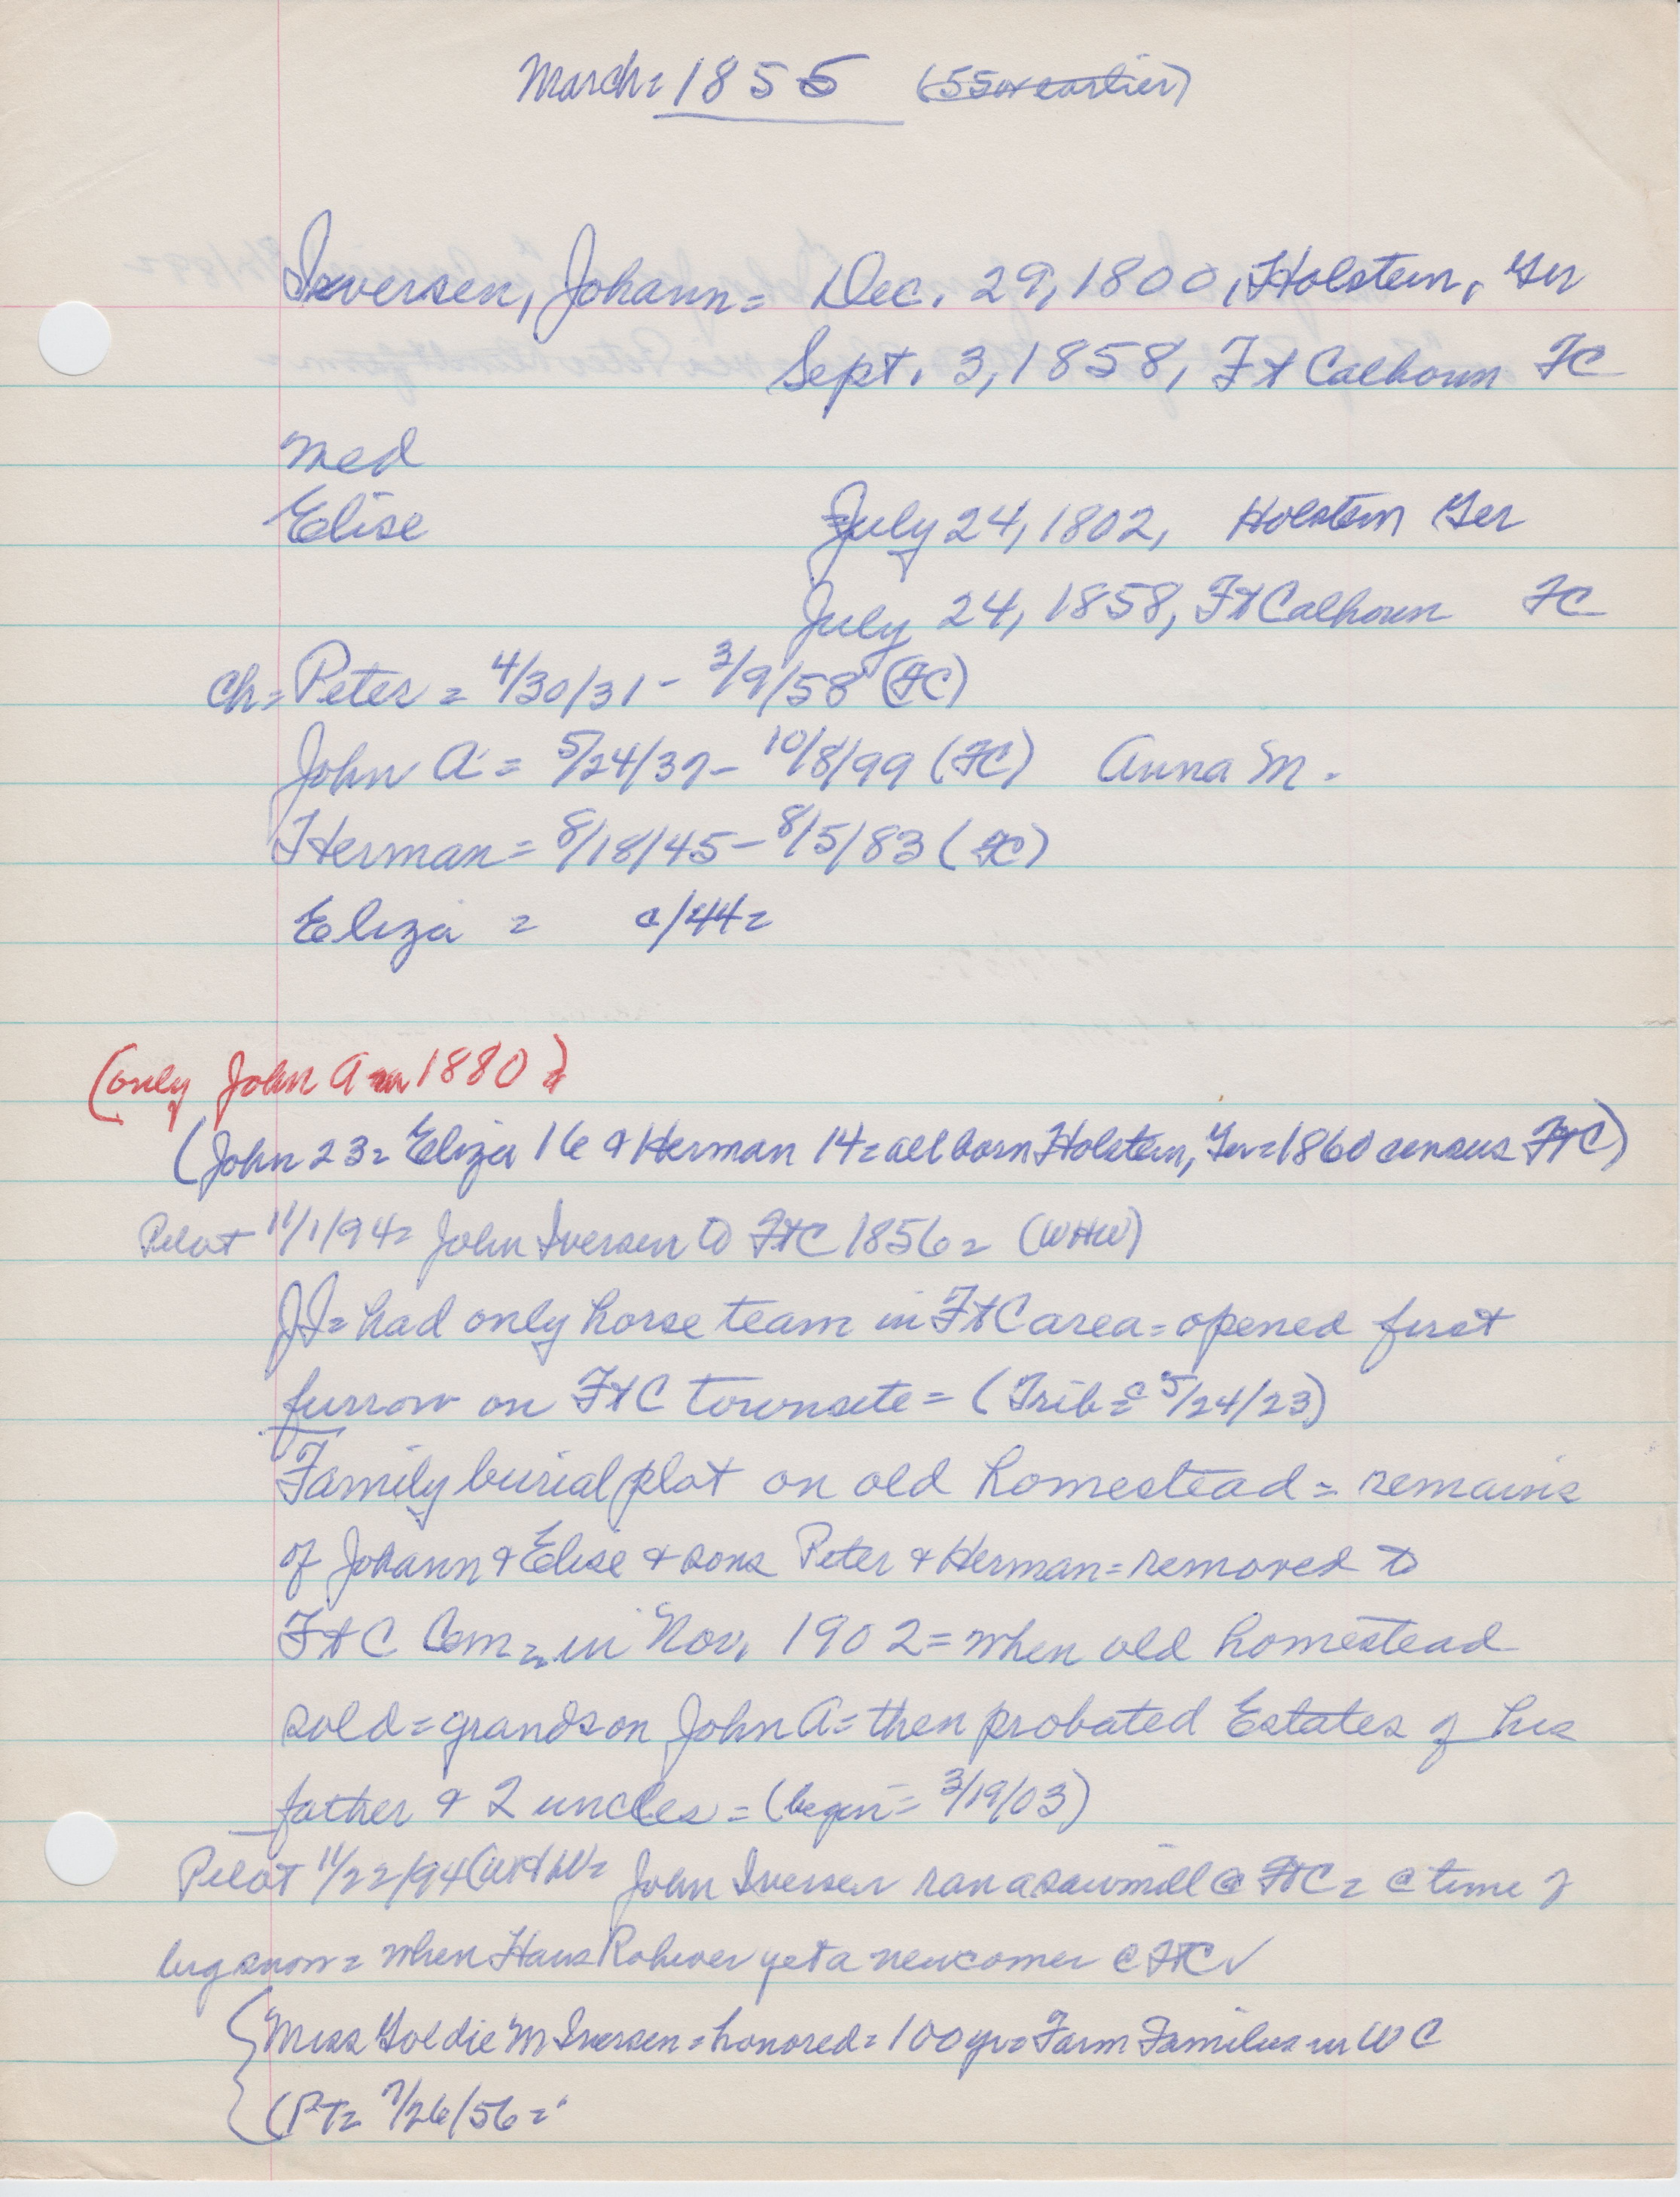 March = 1855 (55 or earlier)
Iversen, Johann = Dec. 29, 1800, Holstein, Ger
Sept. 3, 1858, Ft Calhoun FC
med
Elise July 24, 1802, Holstein Ger
July 24, 1858, Ft Calhoun FC
ch = Peter = 4/30/31 - 3/9/58 (FC)
John A = 5/24/37 - 10/8/99 (FC) Anna M.
Herman = 8/18/45 - 8/5/83 (FC)
Eliza = c/44 =
(only John A in 1880)
(John 23 = Eliza 16 & Herman 14 = all born Holstein, Ger = 1860 census FtC)
Pilot 11/1/94 = John Iversen to FtC 1856 = (WHW)
JI = had only horse team in FtC area = opened first
furrow on FtC townsite = (Trib = c 5/24/23)
Family burial plot on old homestead = remains
of Johann & Elise & sons Peter & Herman = removed to
FtC Cem = in Nov, 1902 = when old homestead
sold = grandson John A = then probated Estates of his
father & 2 uncles = (begin = 3/19/03)
Pilot 11/22/94 (WHW = John Iversen ran a sawmill @ FtC = @ time of
big snow = when Hans Rohwer yet a newcomer @ FtC ✓
Miss Goldie M Iversen = honored = 100 yr = Farm Families in WC
(PT = 7/26/56 =